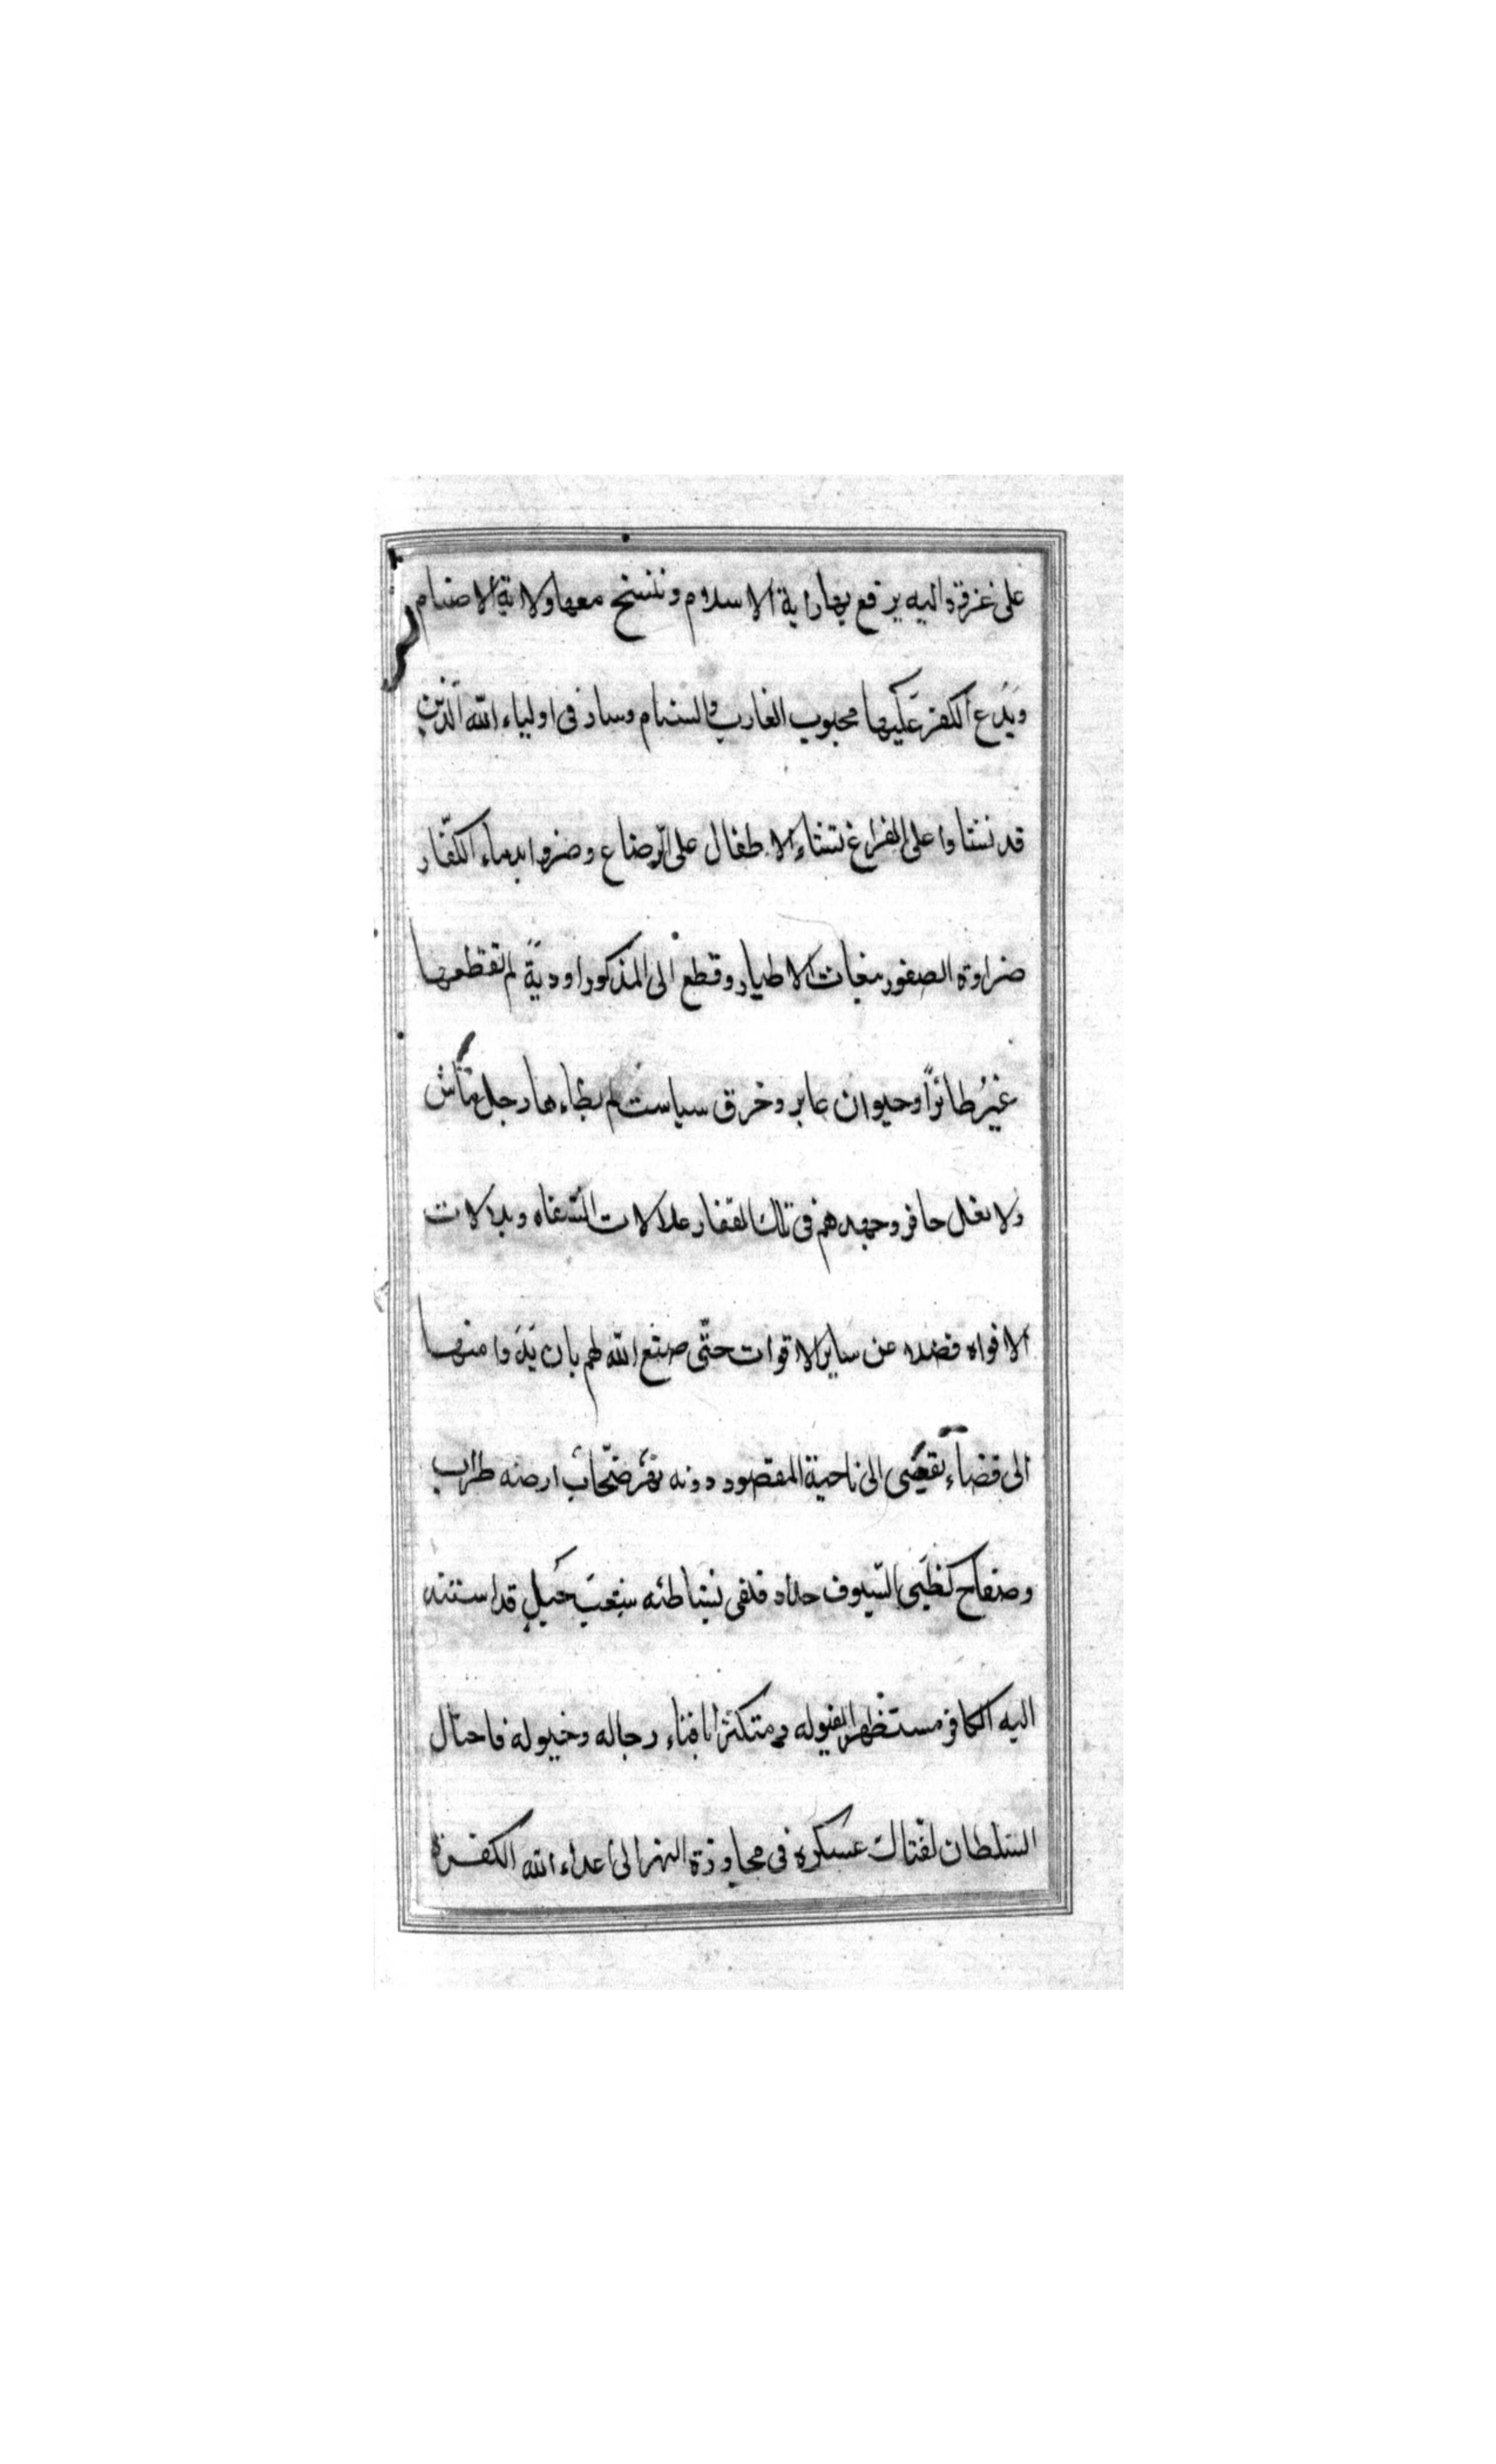 على غزوة اليه يرفع بها راية الاسلام وننسخ معها ولاية الاصنام
ويدع الكفر عليها محبوب الغارب والسنام وسار فى اولياء الله الذين
قد نشاوا على الفراغ نشاء الاطفال على الرضاع وضروا بدماء الكفار
ضراوة الصقور بغاث الاطيار وقطع الى المذكور اودية لم تقطعها
غير طائرا وحيوان عابر وخرق سياست لم يطاءها رجل ماش
ولا نعل حافر وجهدهم فى تلك القفار علالات الشفاه وبلالات
الافواه فضلا عن ساير الاقوات حتى صنع الله لهم بان بدوا منها
الى قضاء تقضى الى ناحية المقصود دونه نهر ارضه
وصفاح كظبى السيوف حداد فلقى بشاطئه شعب جبل قد استند
اليه الكافر مستظهرا بفيوله ومتكثرا بافناء رجاله وخيوله فاحتال
السلطان لفتاك عسكره فى مجاوزة النهر الى اعداء الله الكفرة